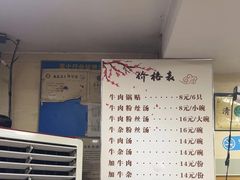 价格表
牛肉锅贴········8元/6只
牛肉粉丝汤······8元/小碗
牛肉粉丝汤······16元/大碗
牛杂粉丝汤······16元/碗
牛肉汤········14元/碗
牛杂汤········14元/碗
加牛肉········14元/份
加牛杂········14元/份